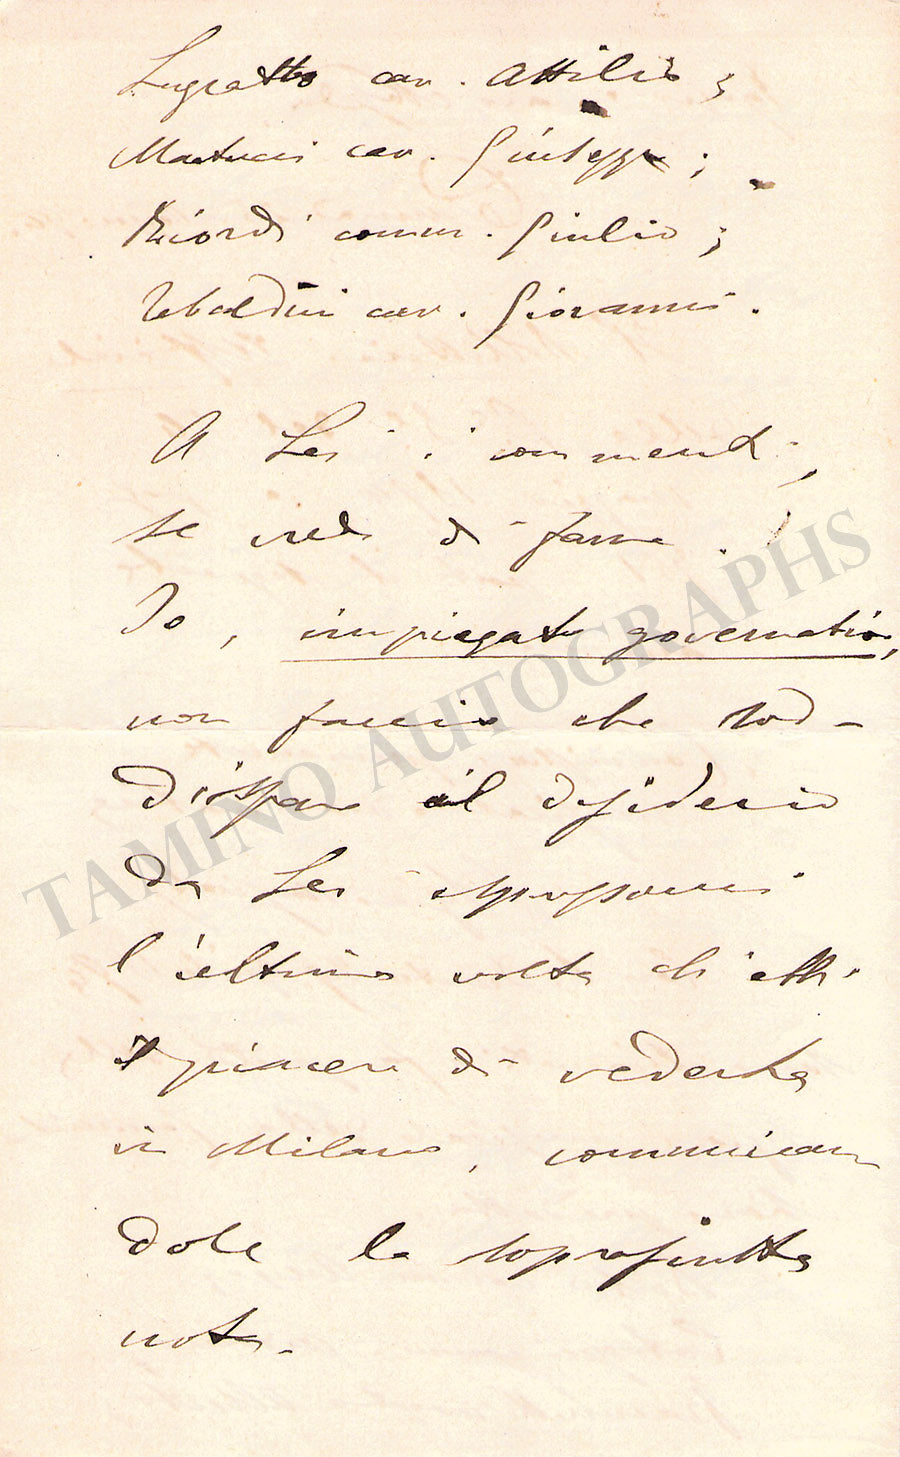 Luzzatto cav. Attilio;
Martucci cav. Giuseppe;
Ricordi comm. Giulio;
Tebaldini cav. Giovanni.
A Lei i commenti,
se crede di farne.
Io, impiegato governativo,
non faccio che sod-
disfare il desiderio
da Lei espressomi
l'ultima volta ch'ebbi
il piacere di vederla
in Milano, comunican
dole la soprascritta
nota.
TAMINO AUTOGRAPHS